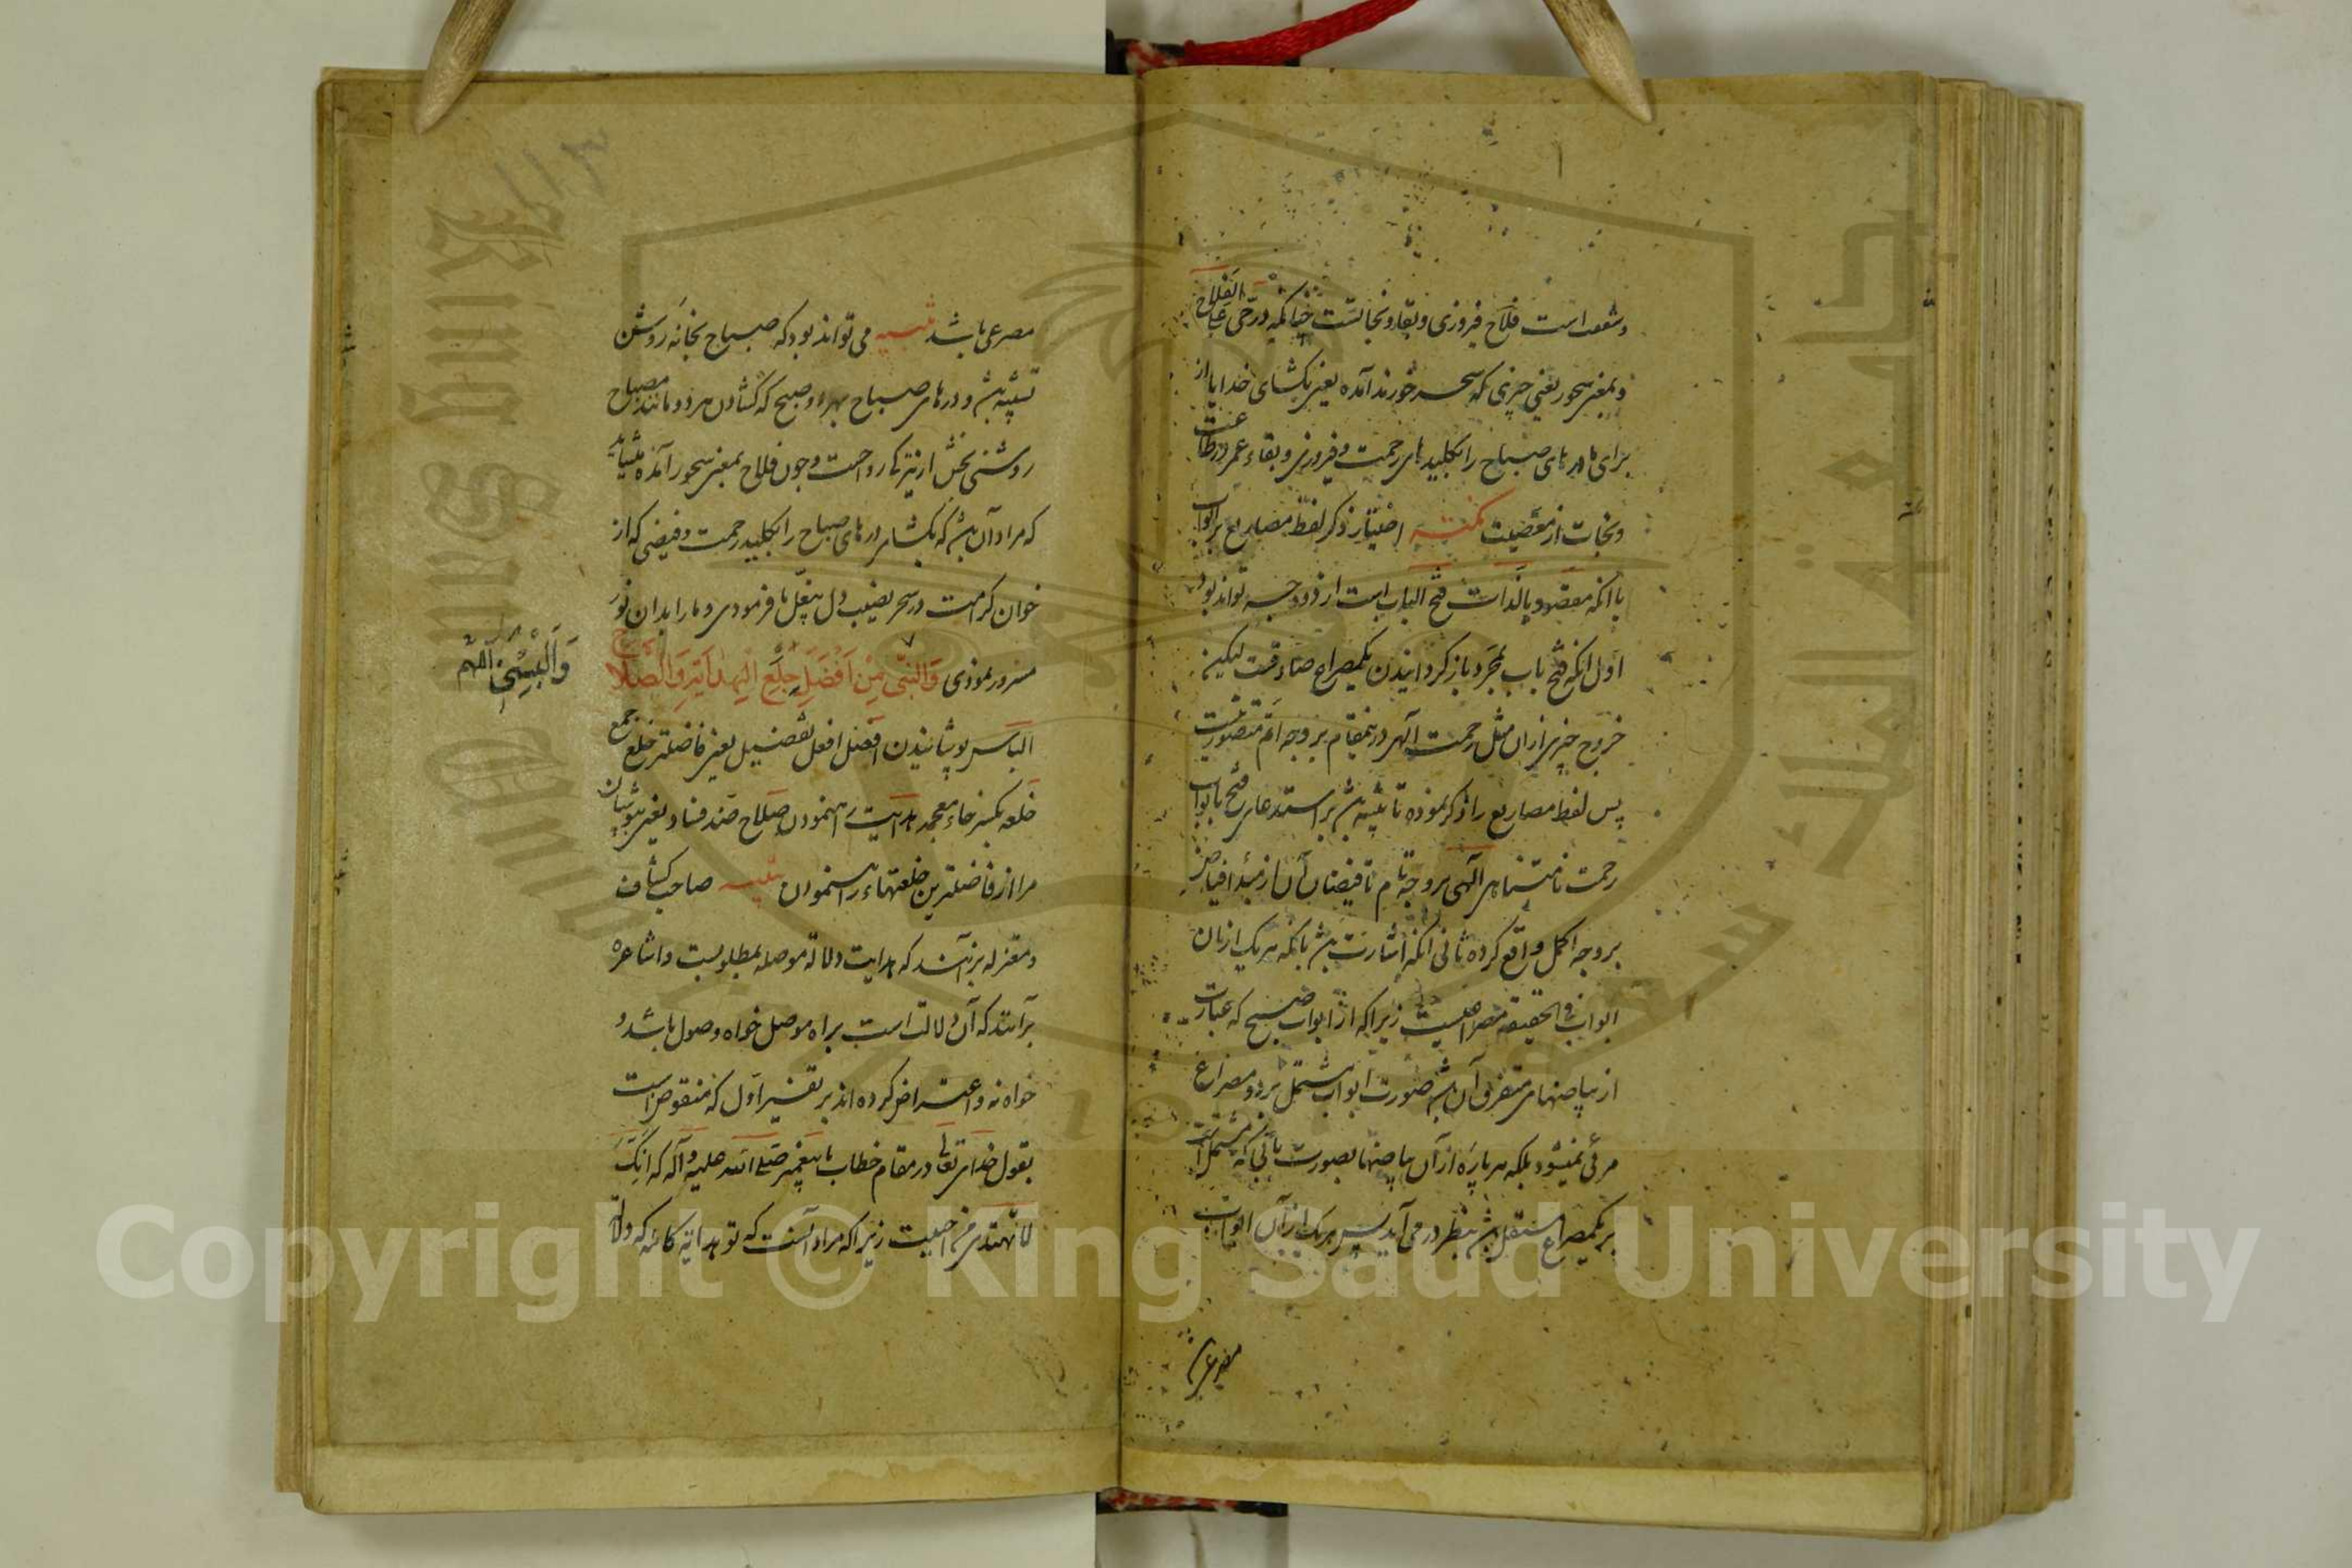 و شفقت است فلاح فیروزی و بقا و نجاتست چنانکه در حی علی الفلاح
و بمعنی سحور یعنی چیزی که سحر خورند آمده یعنی بکشای خدایا از
برای ما درهای صباح را بکلیدهای رحمت و فیروزی و بقاء عمر در طاعت
و نجات از معصیت نکته اختیار ذکر لفظ مصاریع بر ابواب
با آنکه مقصود بالذات فتح الباب است از دو وجه تواند بود
اول آنکه فتح باب بمجرد باز گردانیدن یکمصراع صادقست لیکن
خروج چیزی از آن مثل رحمت الهی درینمقام بر وجه اتم متصور نیست
پس لفظ مصاریع را ذکر نموده تا تنبیه باشد بر استدعای فتح ابواب
رحمت نامتناهی الهی بر وجه تام تا فیضان آن از مبدأ فیاض
بر وجه اکمل واقع گردد ثانی آنکه اشارت باشد بآنکه هر یک از آن
ابواب فی الحقیقه مصراعیست زیرا که از ابواب صبح که عبارت
از بیاضهای متفرق آن باشد صورت ابواب مشتمل بر دو مصراع
مرئی نمیشود بلکه هر پاره از آن بیاضها بصورت بابی که مشتمل
بر یکمصراع مستقل باشد بنظر در می آید پس هر یک از آن ابواب
مصرعی باشد
مصرعی باشد تنبیه می تواند بود که صباح بخانه روشن
تشبیه باشد و درهای صباح بهر دو صبح که گشادن هر دو مانند مصباح
روشنی بخش از نیز کارواحست و چون فلاح بمعنی سحور آمده میشاید
که مراد آن باشد که بکشا درهای صباح را بکلید رحمت و فیضی که از
خوان کرامت در سحر نصیب دل ما فرمودی و ما را بدان نور
مسرور نمودی وَأَلْبِسْنِي مِنْ أَفْضَلِ خِلَعِ الْهِدَايَةِ وَالصَّلَاحِ
وَأَلْبِسْنِي اللهم
الباس پوشانیدن افضل افعل تفضیل یعنی فاضلتر خلع جمع
خلعه بکسر خاء معجمه هدایت راهنمودن صلاح ضد فساد یعنی بپوشان
مرا از فاضلترین خلعتهاء راهنمودن تنبیه صاحب کشاف
و معتزله برآنند که هدایت دلالة موصله بمطلوبست و اشاعره
برآنند که آن دلالت است براه موصل خواه وصول باشد و
خواه نه و اعتراض کرده اند بر تفسیر اول که منقوض است
بقول خدای تعالی در مقام خطاب با پیغمبر صلی الله علیه و آله که انک
لا تهدی من احببت زیرا که مراد آنست که تو هدایة کامله که دلالة